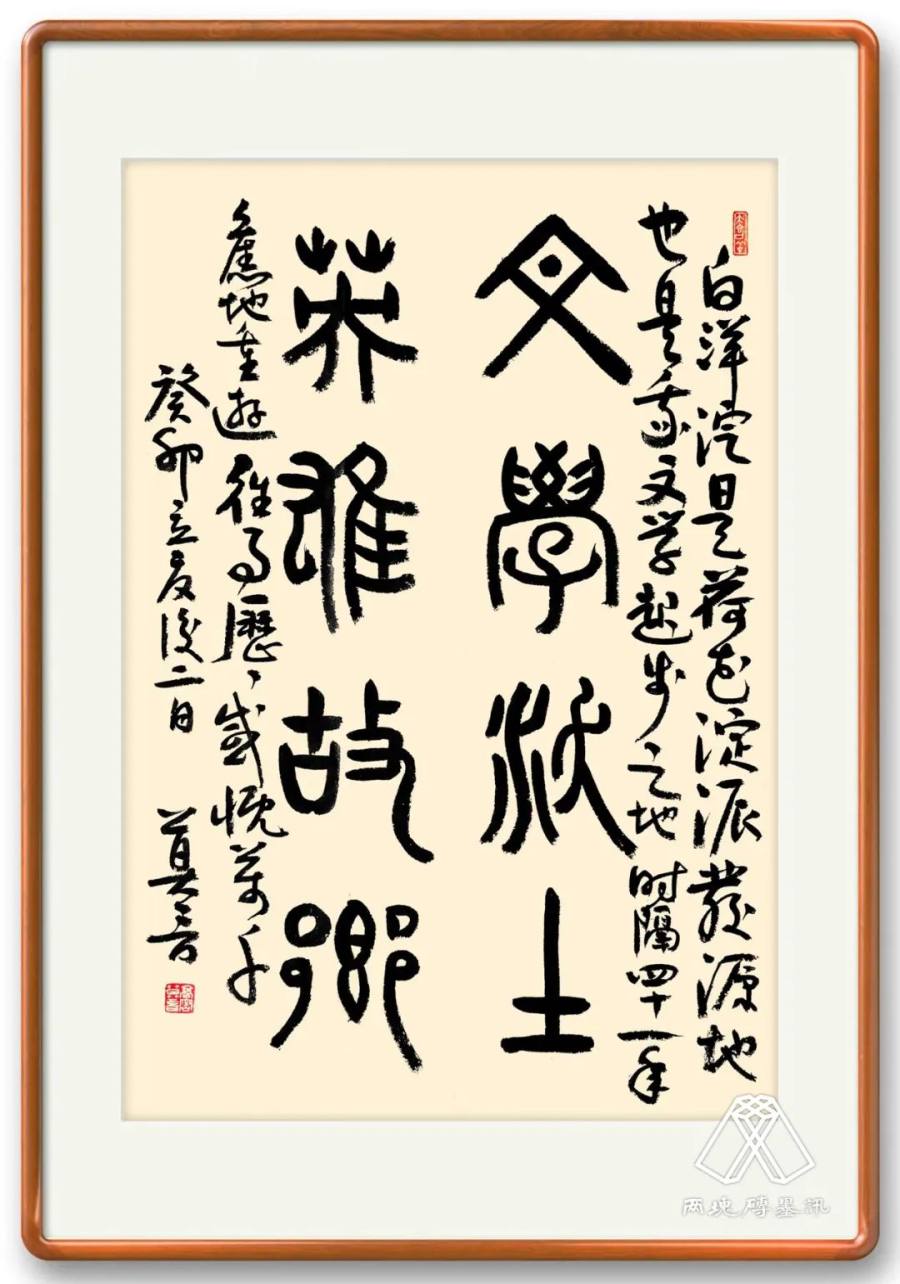 白洋淀是荷花淀派發源地
也是我文学起步之地时隔四十一年
文學沃土
英雄故鄉
舊地重遊往事歷〻感慨萬千
癸卯立夏後二日 莫言
两块磚墨訊